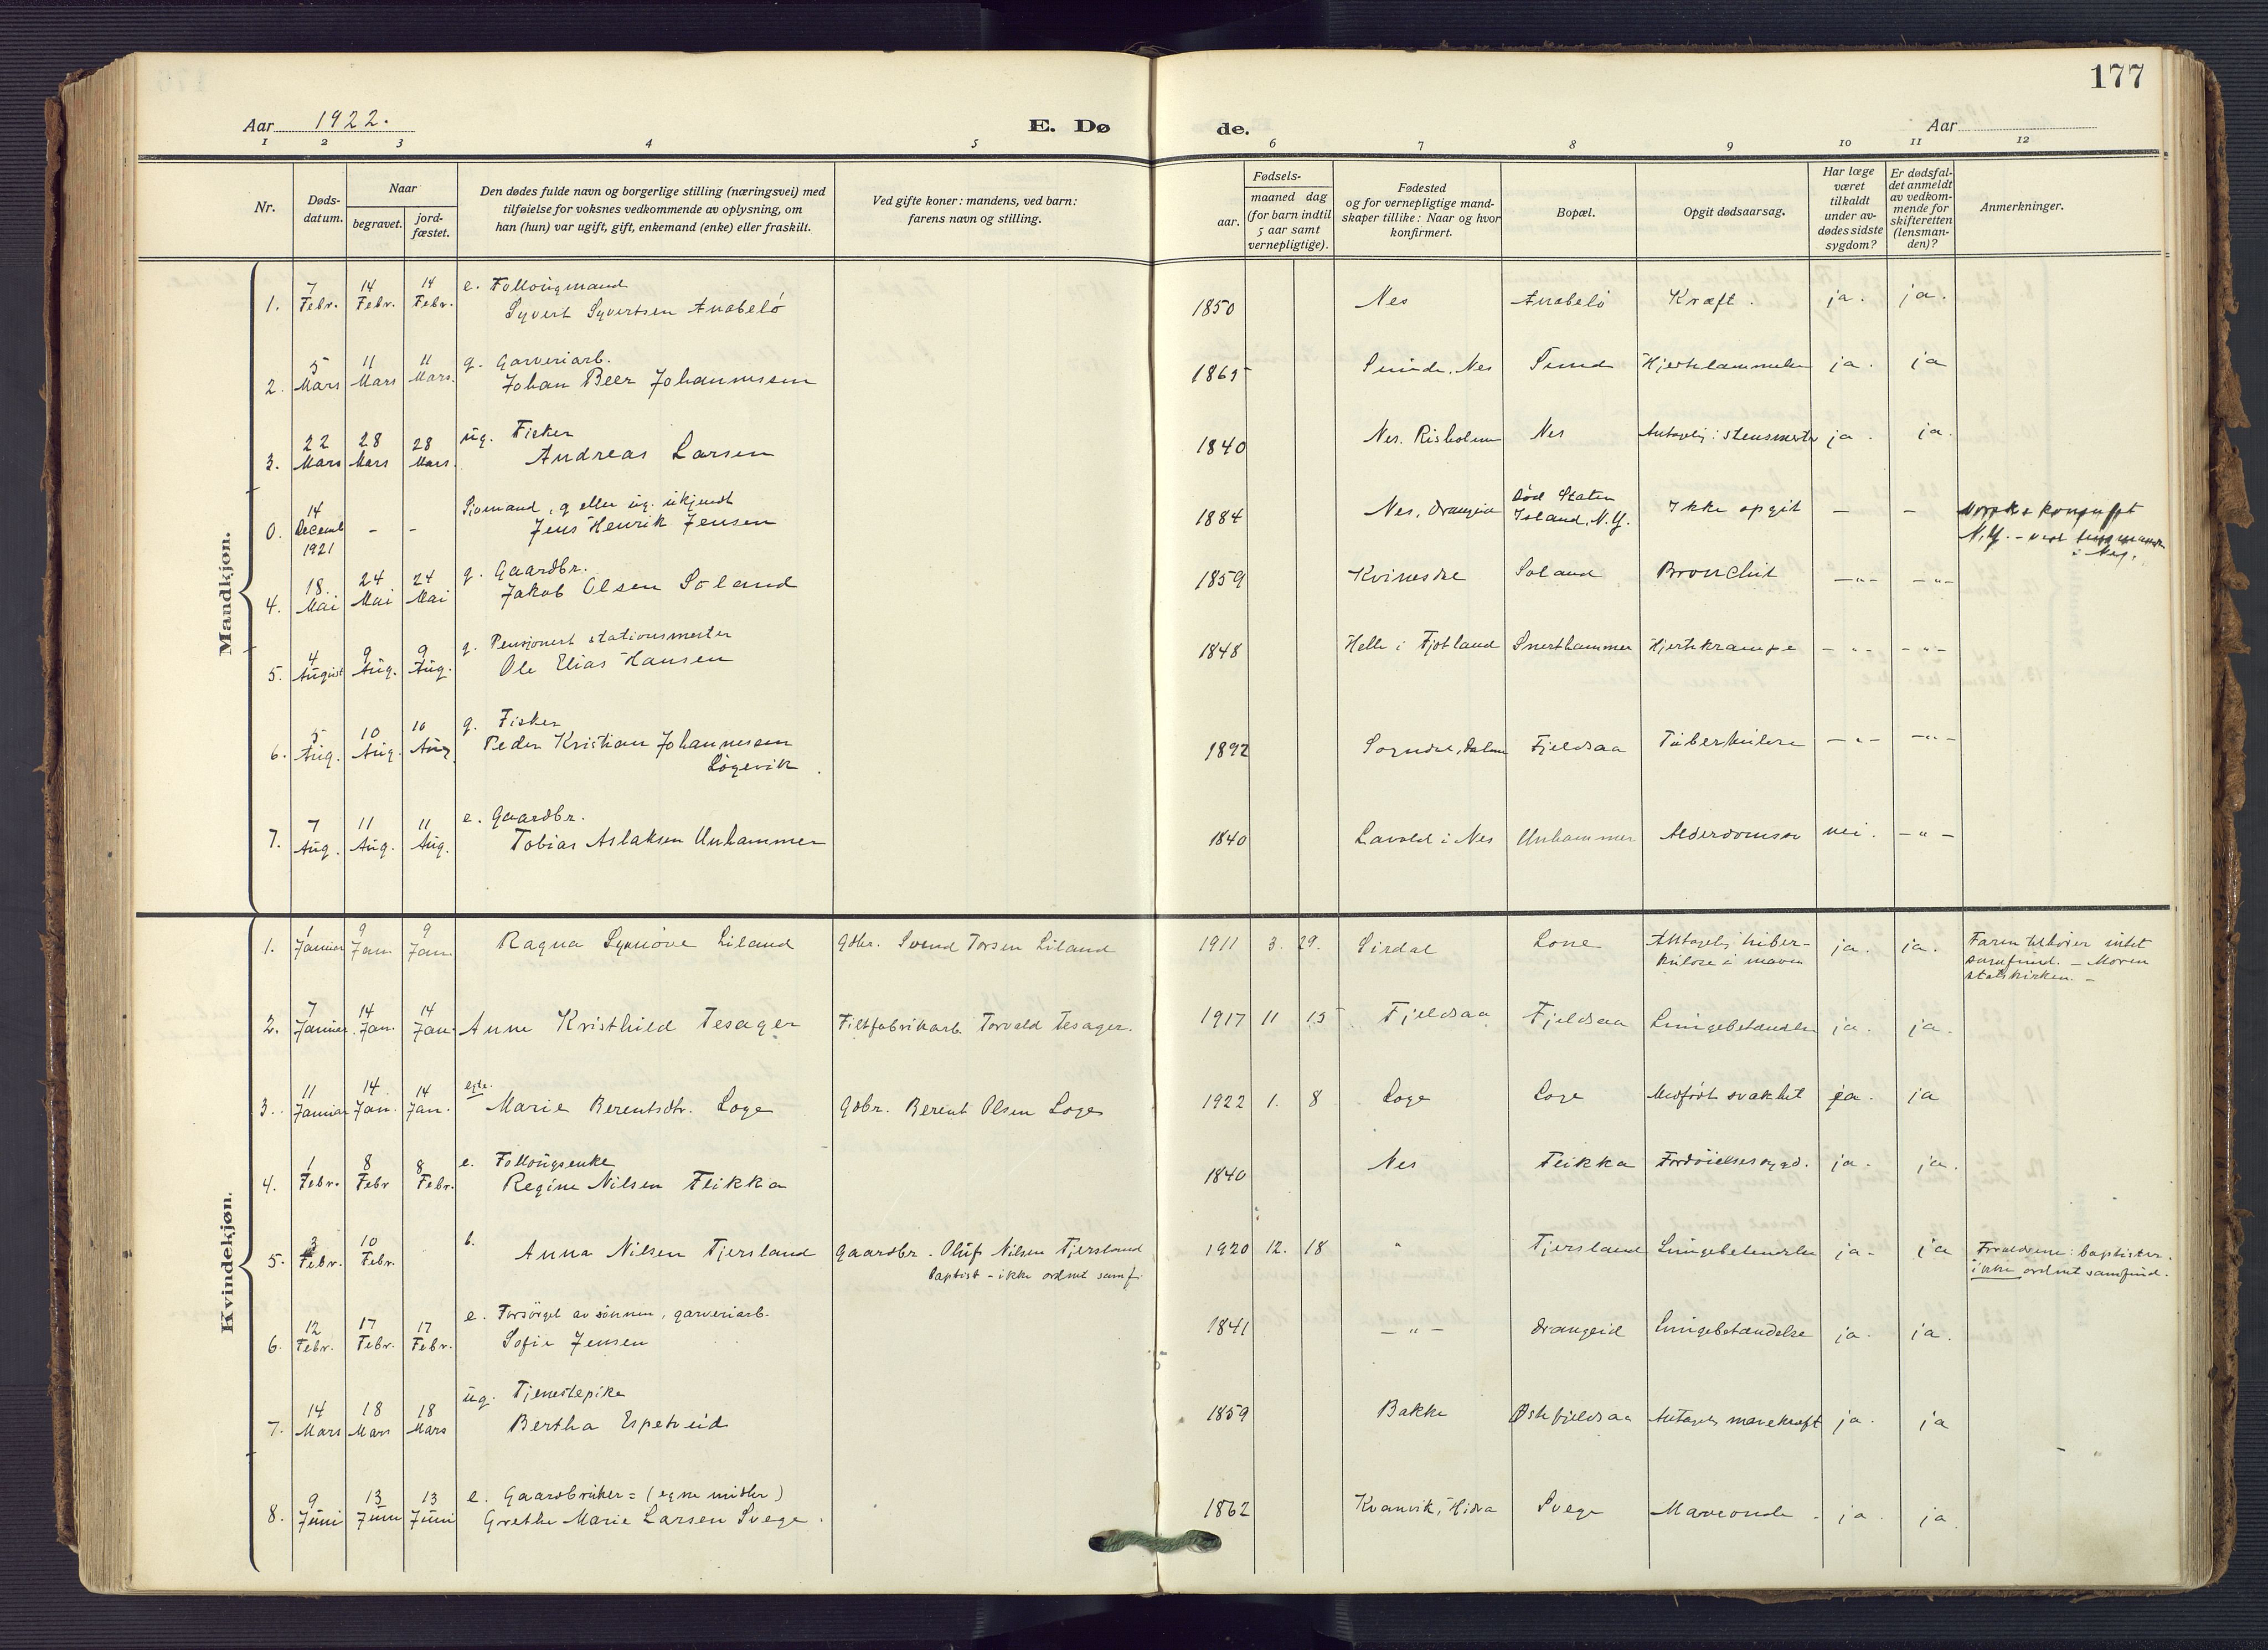 177
Aar 1922.
E. Dø de.
Aar
1 2 3 4 5 6 7 8 9 10 11 12
Nr.
Døds-
datum.
Naar
begravet.
jord-
fæstet.
Den dødes fulde navn og borgerlige stilling (næringsvei) med
tilføielse for voksnes vedkommende av oplysning, om
han (hun) var ugift, gift, enkemand (enke) eller fraskilt.
Ved gifte koner: mandens, ved barn:
farens navn og stilling.
Fødsels-
aar.
maaned dag
(for barn indtil
5 aar samt
vernepligtige).
Fødested
og for vernepligtige mand-
skaper tillike: Naar og hvor
konfirmert.
Bopæl.
Opgit dødsaarsag.
Har læge
været
tilkaldt
under av-
dødes sidste
sygdom?
Er dødsfal-
det anmeldt
av vedkom-
mende for
skifteretten
(lensman-
den)?
Anmerkninger.
Mandkjøn.
7 14 14 e. Follougmand
1. Febr. Febr. Febr. Syvert Syvertsen Anabelö 1850 Nes Anabelö Kræft. ja. ja.
5 11 11 g. Garveriarb.
2. Mars Mars Mars. Johan Beer Johannessen 1865 Sunde, Nes Sunde ja. ja
22 28 28 ug. Fisker
3. Mars Mars Mars. Andreas Larsen 1840 Nes. Risholm Nes ja. ja.
14 Sjømand, g eller ug. ukjendt
0. Decemb 1921 - - Jens Henrik Jensen 1884 Nes, Drangeid Død Staten Island, N.Y. Ikke opgit - -
N.Y.
i Nes.
18. 24 24 g. Gaardbr.
4. Mai Mai Mai Jakob Olsen Soland 1859 Kvinesdal Soland Bronchit -"- -"-
4 9 9 g. Pensjonert stationsmester
5. August Aug. Aug. Ole Elias Hansen 1848 Helle i Fjotland Snerthammer Hjertekrampe -"- -"-
5 10 10 g. Fisker
6. Aug. Aug. Aug Peder Kristian Johannessen 1892 Sogndal, Dalane Fjeldsaa Tuberkulose -"- -"-
Lögevik.
7 11 11 e. Gaardbr.
7. Aug. Aug. Aug. Tobias Aslaksen Unhammer 1840 Lavold i Nes Unhammer Alderdomssv nei. -"-
Kvindekjøn.
1 9 9
1. Januar Jan. Jan. Ragna Synnöve Liland Gdbr. Svend Torsen Liland 1911 3. 29. Sirdal Lone Antagelig tuber- ja. ja. Faren tilhører intet
kulose i maven samfund. - Moren
statskirken. -
7 14 14
2. Januar Jan. Jan. Anne Kristhild Tesager Filtfabrikarb. Torvald Tesager. 1917 11 15 Fjeldsaa Fjeldsaa Lungebetændelse ja. ja.
11 14. 14 egte.
3. Januar Jan. Jan. Marie Berentsdtr. Loge Gdbr. Berent Olsen Loge 1922 1. 8 Loge Loge Medfödt svakhet ja. ja
1 8 8 e. Follougsenke
4. Febr. Febr Febr. Regine Nilsen Fleikka 1840 Nes Fleikka Fordöielsessygd. ja. ja.
3 10 b.
5. Febr. Febr. Anna Nilsen Tjersland Gaardbr. Oluf Nilsen Tjersland 1920 12. 18 " Tjersland Lungebetændelse ja. ja Forældrene: baptister.
Baptist - ikke ordnet samf. ikke ordnet samfund.
12 17 17 e. Forsörget av sönnen, garveriarb.
6. Febr. Febr. Febr. Sofie Jensen 1841 -"- Drangeid Lungebetændelse ja. ja.
14 18 18 ug. Tjenestepike
7. Mars Mars Mars Bertha Espetveid 1859 Bakke Østefjeldsaa Antagelig mavekræft ja. ja
9 13 13 e. Gaardbruker = (egne midler)
8. Juni Juni Juni Grethe Marie Larsen Svege. 1862 Kvanvik, Hidra Svege Maveonde. ja. ja.